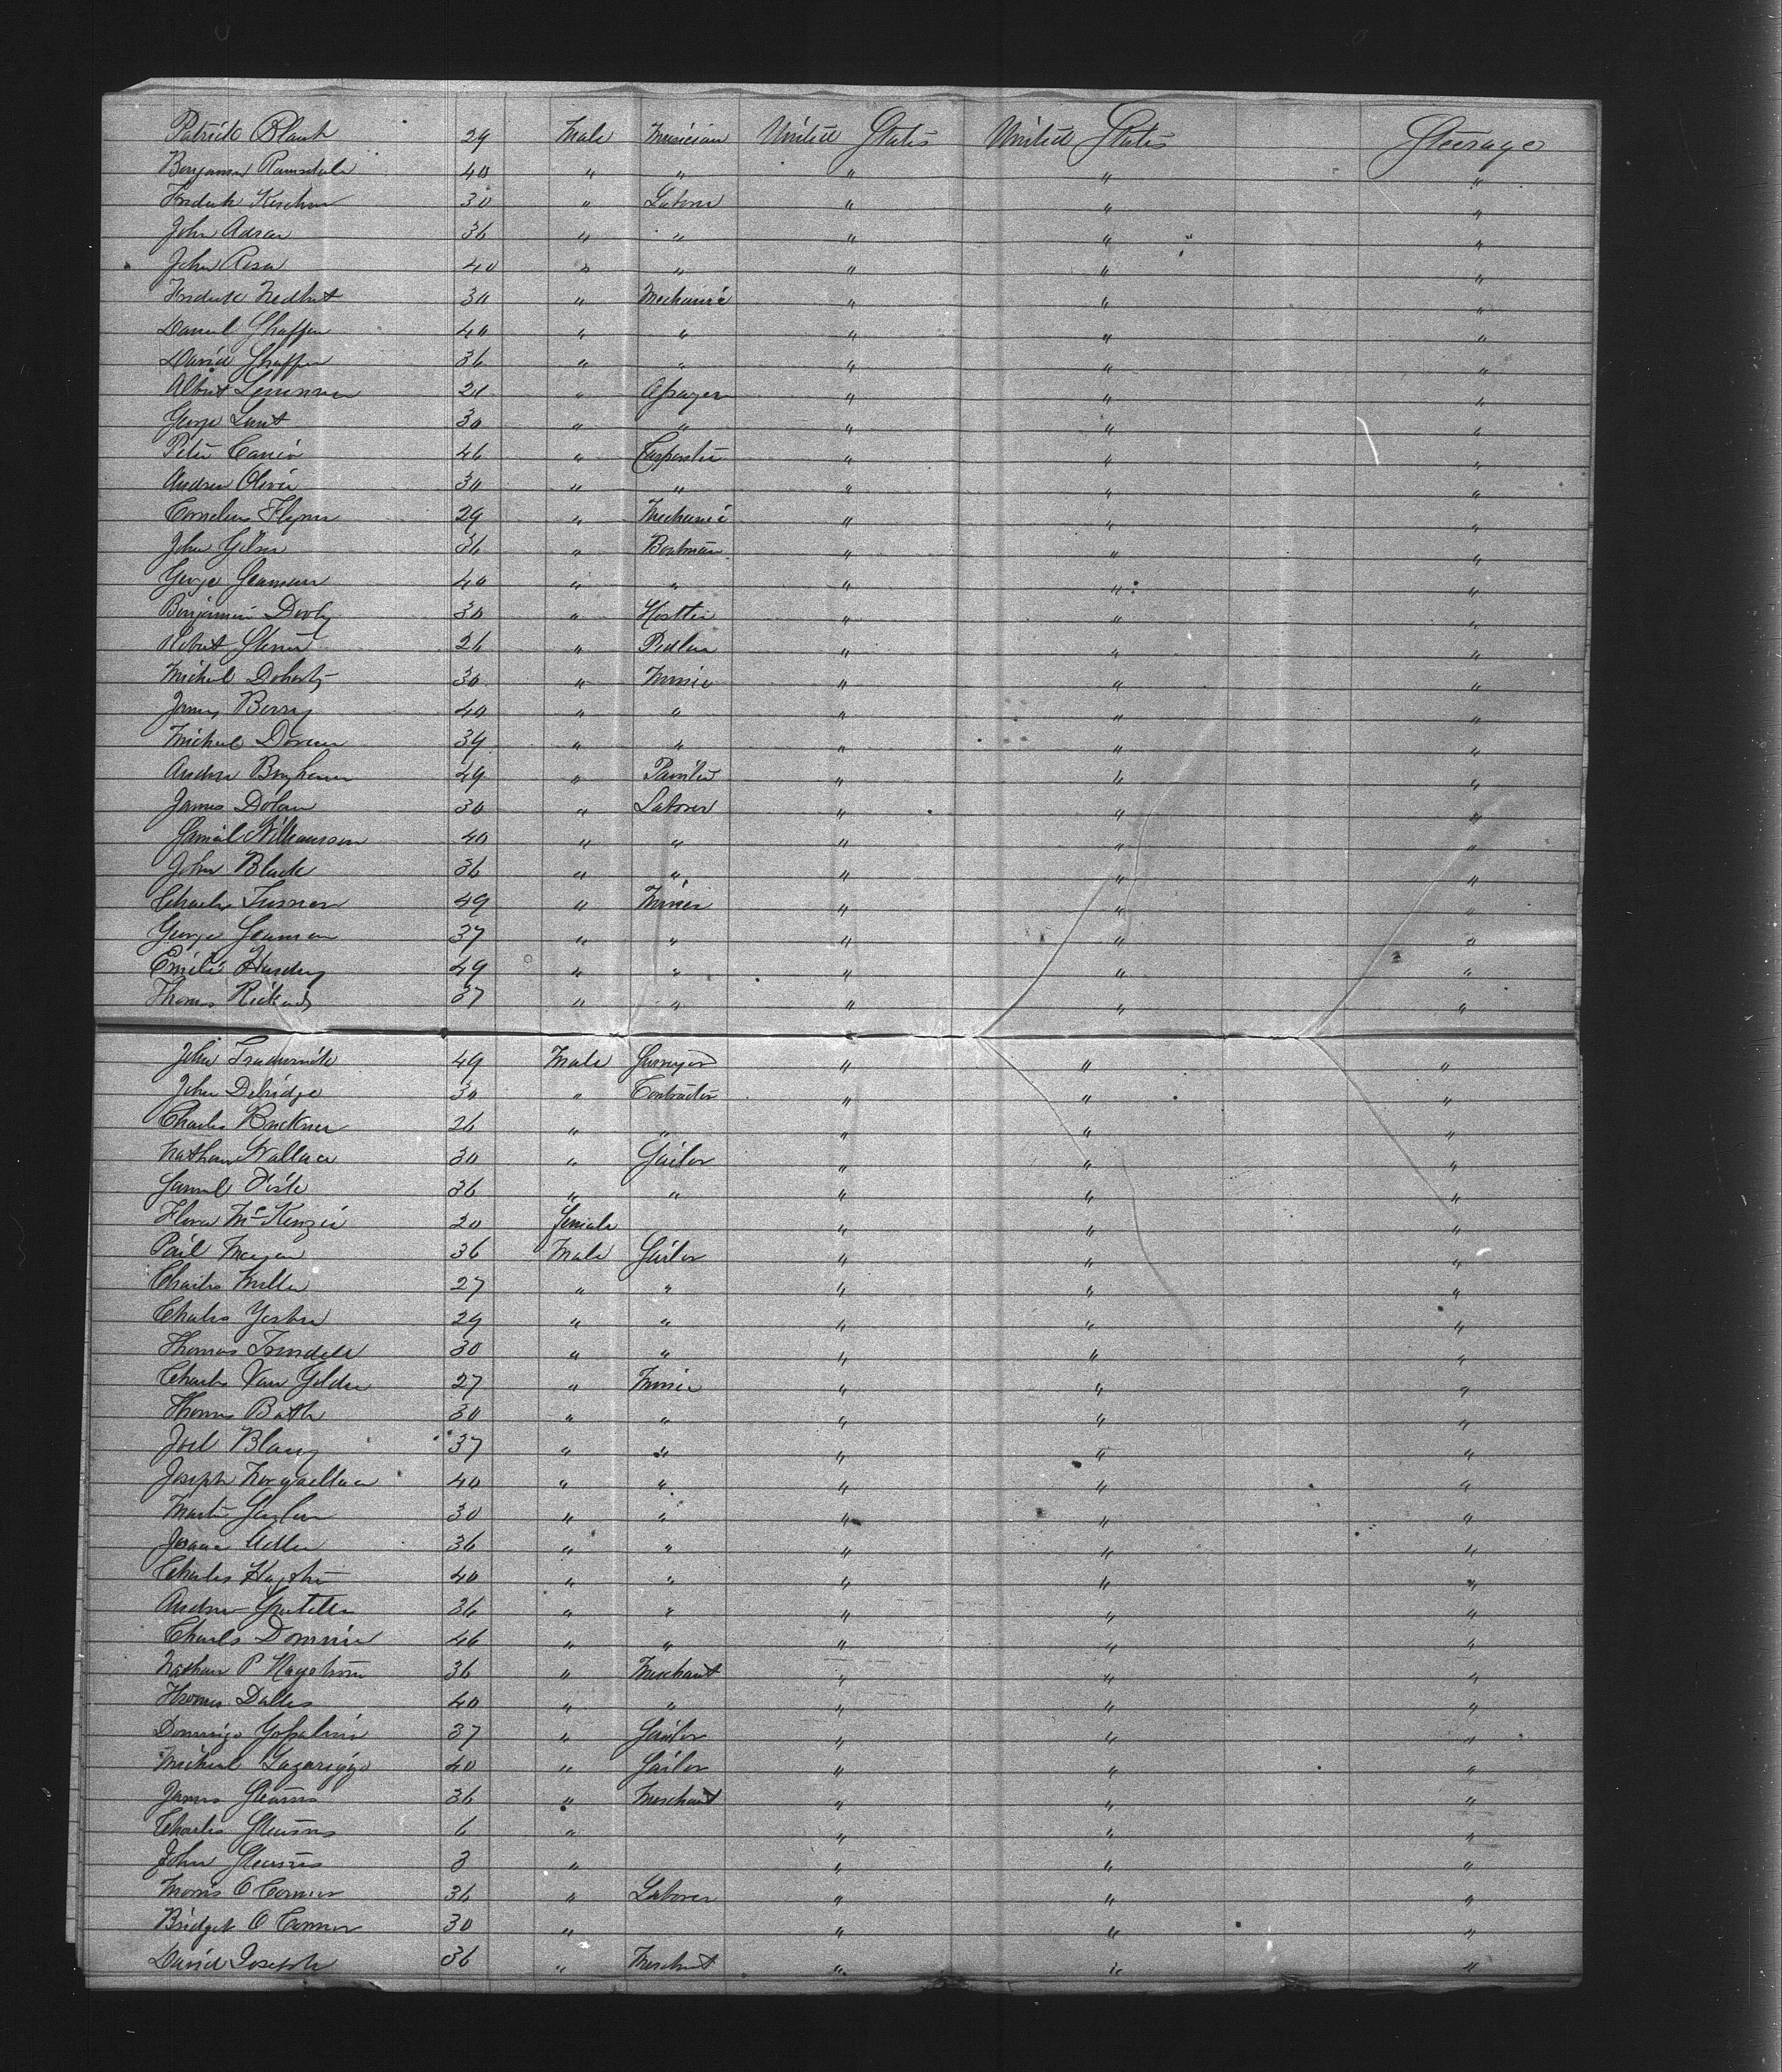 Patrick Blank 29 Male Musician United States United States Steerage
Benjamin Ramsdale 40 " " " " "
Fredrick Kirchner 30 " Laborer " " "
John Adran 36 " " " " "
John Rosa 40 " " " " "
Fredrick 30 " Mechanic " " "
Daniel Shaffer 40 " " " " "
David Shaffer 36 " " " " "
Albert " " " "
George Lunt 30 " " " " "
Peter 46 " Carpenter " " "
Andrew Oliver 30 " " " " "
Cornelius Flynn 29 " Mechanic " " "
John 36 " Boatman " " "
George Seaman 40 " " " " "
Benjamin Dooly 30 " Hostler " " "
Robert 26 " Pedlar " " "
Michael Doherty 30 " Miner " " "
James Berry 40 " " " " "
Michael Doran 39 " " " " "
Andrew 49 " Painter " " "
James Dolan 30 " Laborer " " "
Samuel Williamson 40 " " " " "
John Black 36 " " " " "
Charles Turner 49 " Miner " " "
George Seaman 37 " " " " "
Emilie Harding 49 " " " " "
Thomas Rickards 37 " " " " "
John 49 Male Surveyor " " "
John Delridge 30 " Contractor " " "
Charles Buckner 26 " " " " "
Nathan Wallace 30 " Sailor " " "
Samuel Fisk 36 " " " " "
Flora McKenzie 20 Female " " "
Paul Meyer 36 Male Sailor " " "
Charles Miller 27 " " " " "
Charles 29 " " " " "
Thomas Trindell 30 " " " " "
Charles Van Gelder 27 " Miner " " "
Thomas Bath 30 " " " " "
Joel Blany 37 " " " " "
Joseph 40 " " " " "
Martin 30 " " " " "
Isaac Adler 36 " " " " "
Charles 40 " " " " "
Andrew 36 " " " " "
Charles 46 " " " " "
Nathan P Hagstrom 36 " Merchant " " "
Thomas Dalles 40 " " " " "
Domingo 37 " Sailor " " "
Michael 40 " Sailor " " "
James Stearns 36 " Merchant " " "
Charles Stearns 6 " " " "
John Stearns 3 " " " "
Morris O Connor 36 " Laborer " " "
Bridget O Connor 30 " " " "
David Joseph 36 " Merchant " " "